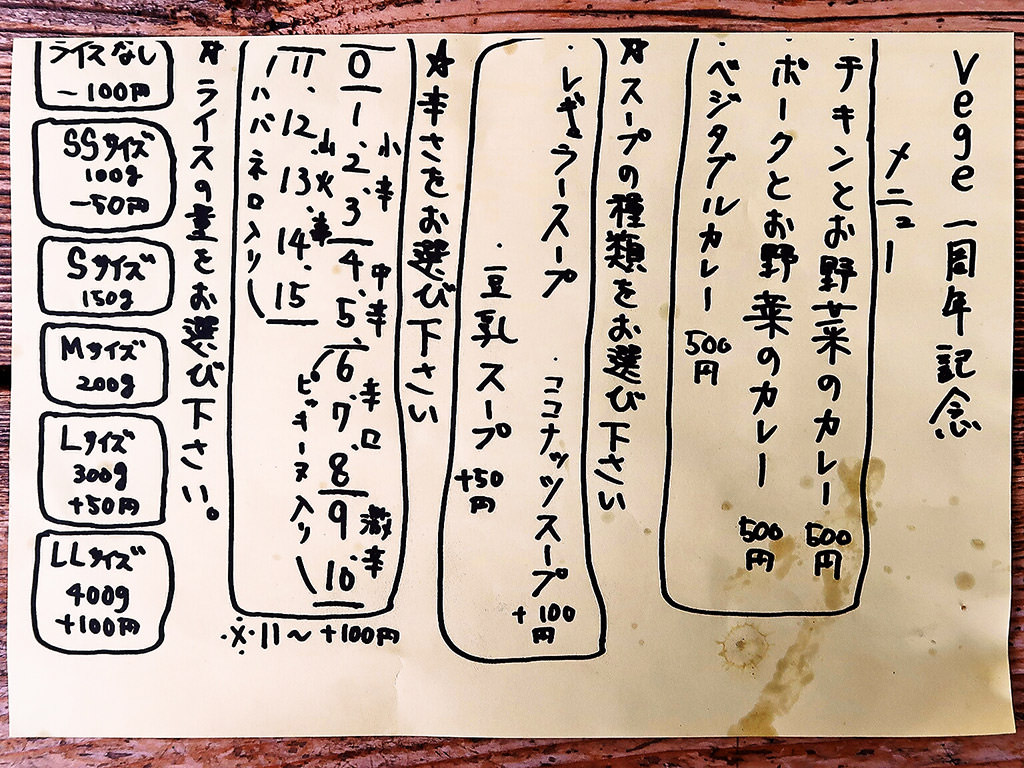 Vege 一周年記念
メニュー
チキンとお野菜のカレー 500円
ポークとお野菜のカレー 500円
ベジタブルカレー 500円
☆スープの種類をお選び下さい
・レギュラースープ ・ココナッツスープ +100円
・豆乳スープ +50円
☆辛さをお選び下さい
小辛 中辛 辛口 激辛
0 1・2・3 4・5 6・7・8 9・10
(ピッキーヌ入り)
11・12・13・14・15 山火辛
(ハバネロ入り)
※・11〜 +100円
☆ライスの量をお選び下さい。
ライスなし
-100円
SSサイズ
100g
-50円
Sサイズ
150g
Mサイズ
200g
Lサイズ
300g
+50円
LLサイズ
400g
+100円